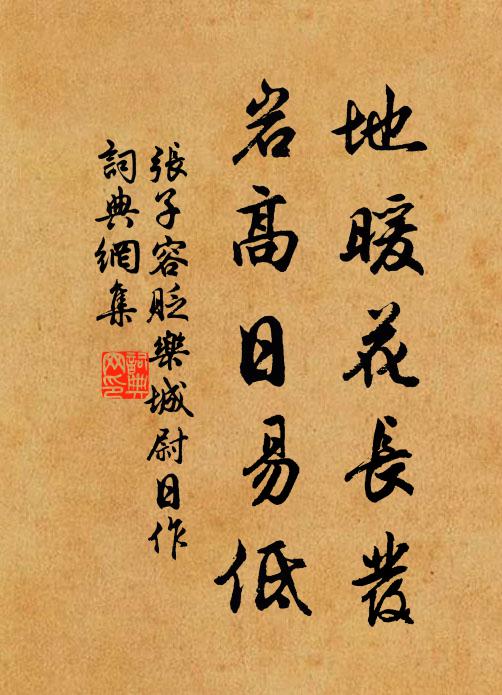 地暖花長發
岩高日易低
張子容貶樂城尉日作
詞典網集
詞典網印